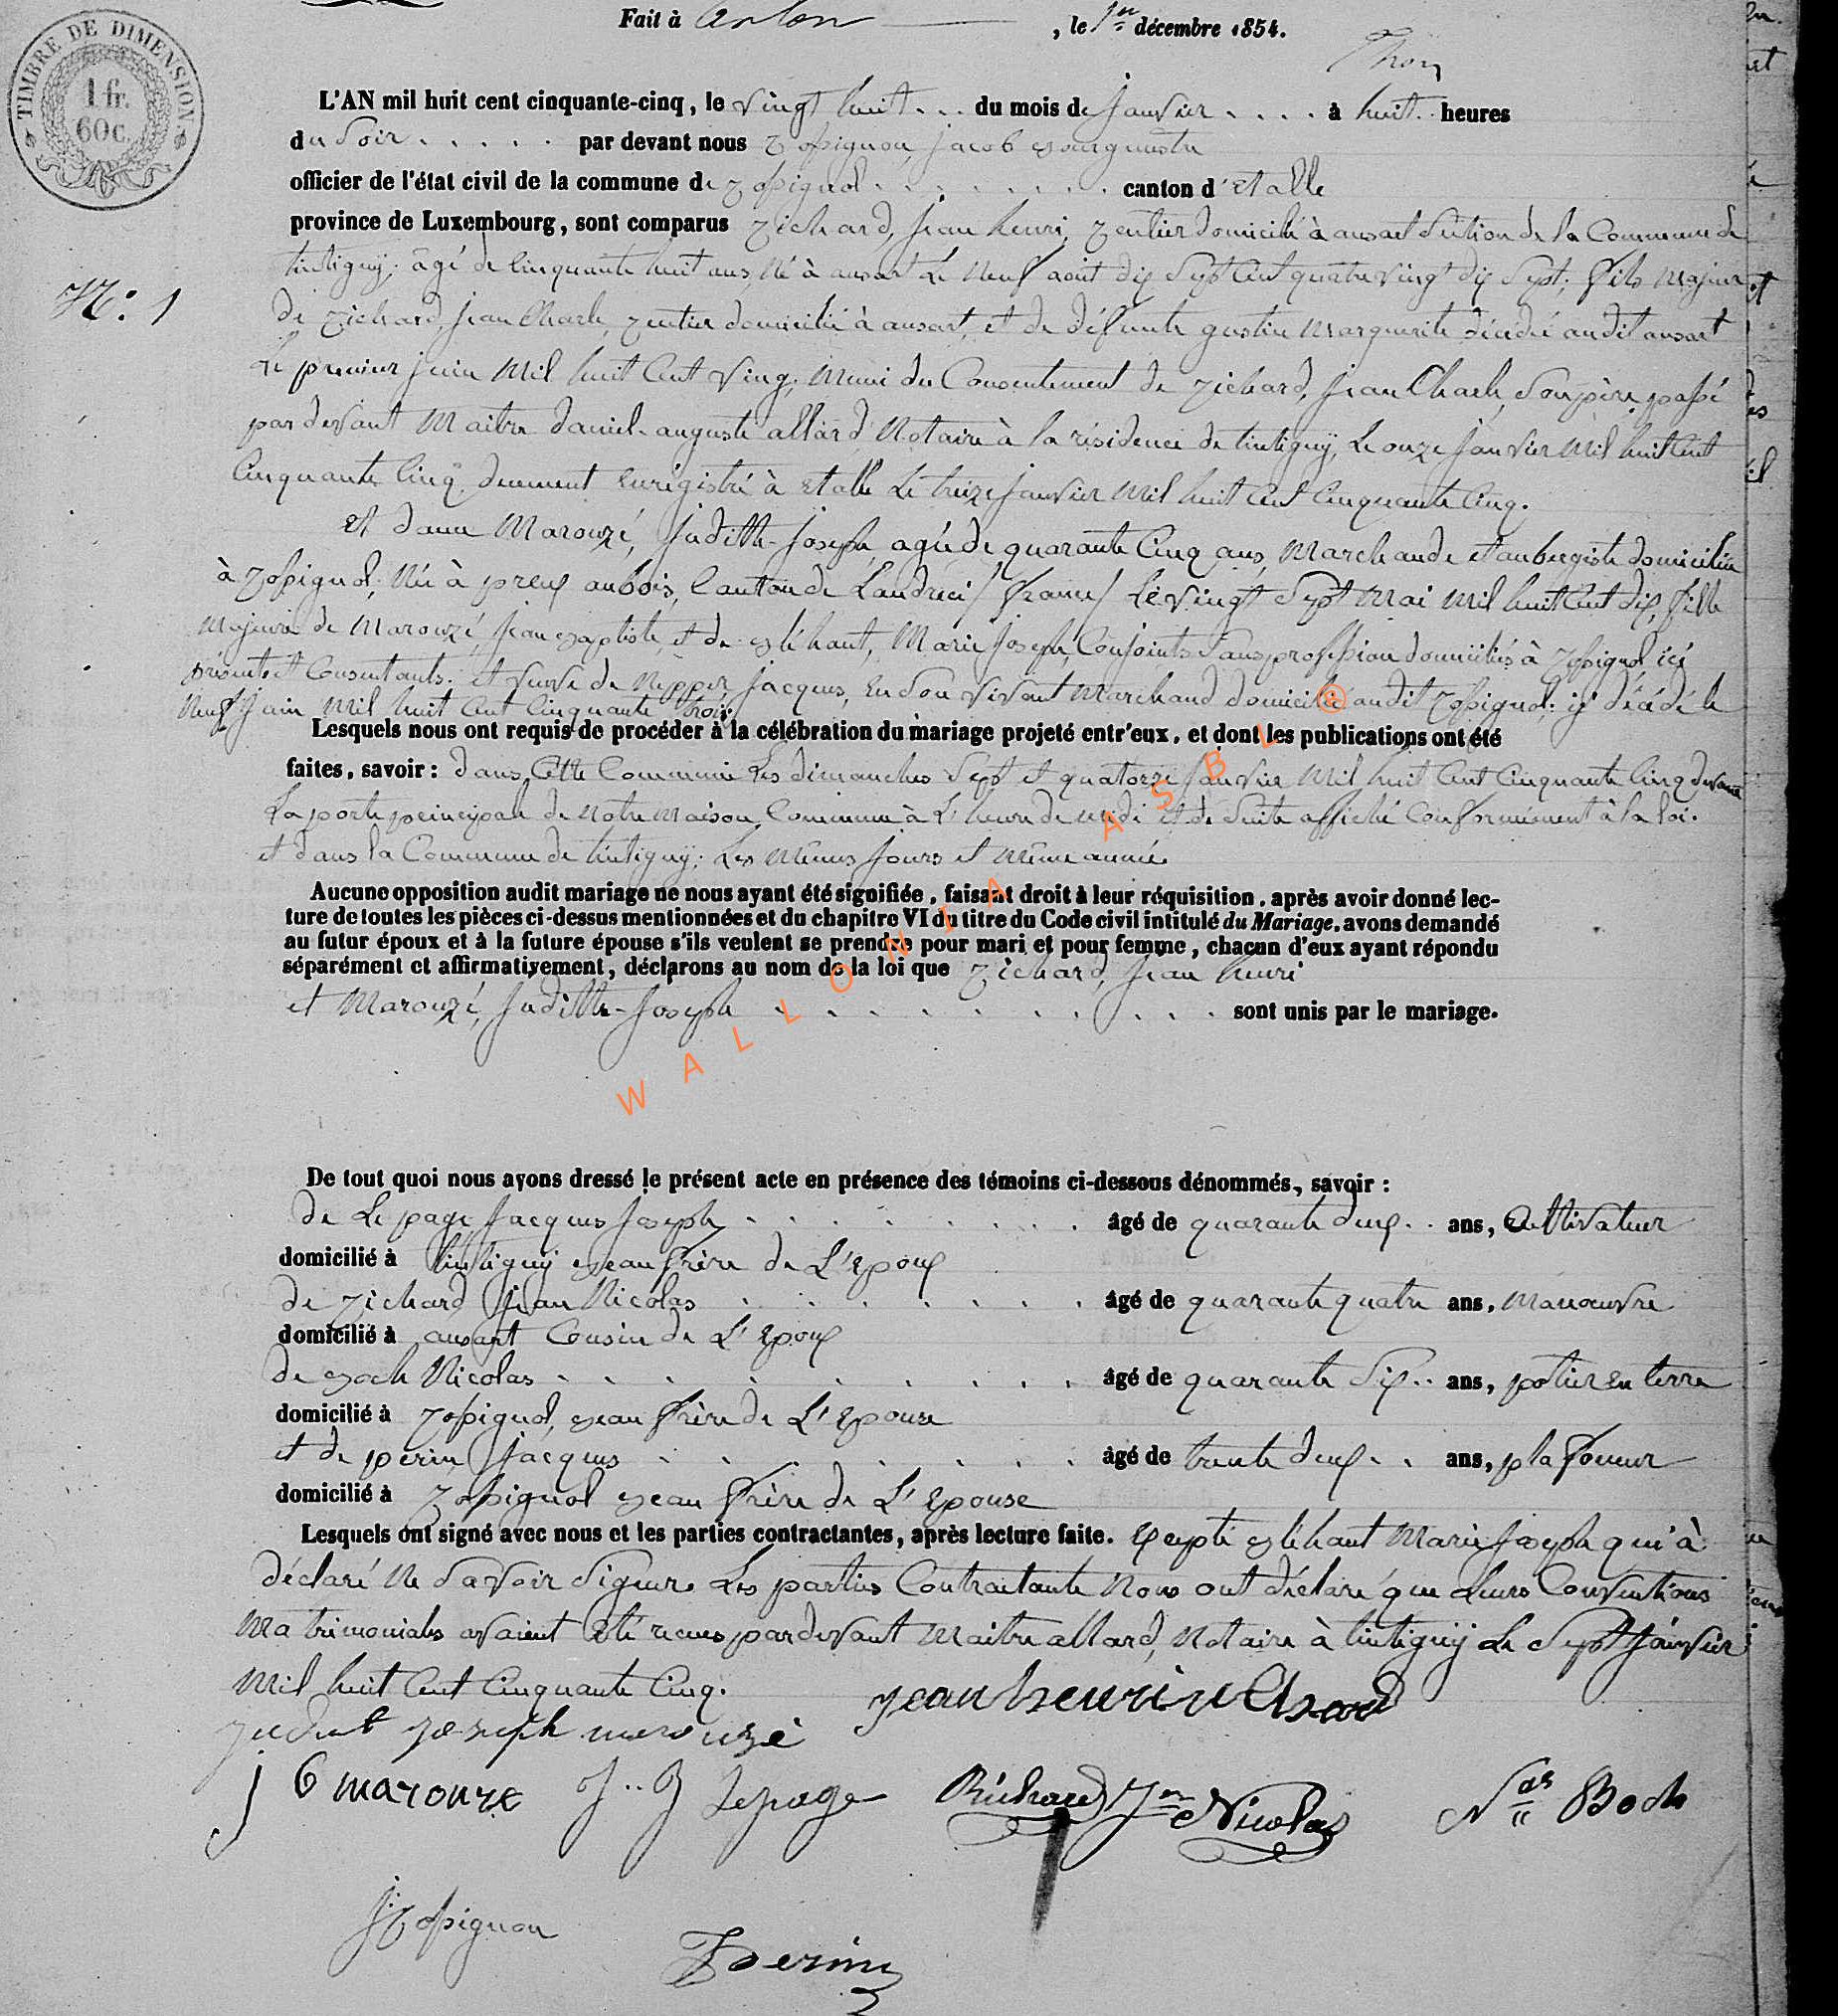 Fait à arlon, le 1er décembre 1854.
TIMBRE DE DIMENSION.
1 fr.
60 c.
Thon
L'AN mil huit cent cinquante-cinq, le vingt huit . . . du mois de Janvier . . . . à huit . . heures
du Soir . . . . . par devant nous Rossignon, Jacob Bourgmestre
officier de l'état civil de la commune de Rossignol . . . . . . . canton d'Etalle
province de Luxembourg, sont comparus Richard, Jean henri, Rentier domicilié à ansart Section de la Commune de
N.o 1
tintigny; âgé de Cinquante huit ans, Né à ansart Le Neuf août dix Sept Cent quatre vingt dix Sept; fils Majeur
de Richard, Jean Charle, Rentier domicilié à ansart, et de défunte gustin Marguerite décédée audit ansart
Le premier Juin Mil huit Cent Ving; Muni du Consentement de Richard, Jean Charle, Son père, passé
par devant Maitre daniel-auguste allard Notaire à la résidence de tintigny, Le onze Janvier Mil huit Cent
Cinquante Cinq duement enrégistré à Etalle Le treize Janvier Mil huit Cent Cinquante Cinq.
et dame Marouzé, Judith-Joseph, agée de quarante Cinq ans, Marchande et aubergiste domiciliée
à Rossignol, Née à preux aubois, Canton de Landreci / france / Le vingt Sept Mai Mil huit Cent dix, fille
Majeure de Marouzé, Jean Baptiste, et de Bléhaut, Marie Joseph, Conjoints Sans profession domiciliés à Rossignol ici
présents et Consentants. et veuve de Nepper, Jacques, En Son vivant Marchand domicilié audit Rossignol; y décédé le
Neuf Juin Mil huit Cent Cinquante trois.
Lesquels nous ont requis de procéder à la célébration du mariage projeté entr'eux, et dont les publications ont été
faites, savoir : dans Cette Commune Les dimanches Sept et quatorze Janvier Mil huit Cent Cinquante Cinq devant
La porte principale de Notre Maison Commune à L'heure de midi et de Suite affiché Conformément à la loi.
et dans la Commune de tintigny; Les Mêmes Jours et Même année.
Aucune opposition audit mariage ne nous ayant été signifiée, faisant droit à leur réquisition, après avoir donné lec-
ture de toutes les pièces ci-dessus mentionnées et du chapitre VI du titre du Code civil intitulé du Mariage, avons demandé
au futur époux et à la future épouse s'ils veulent se prendre pour mari et pour femme, chacun d'eux ayant répondu
séparément et affirmativement, déclarons au nom de la loi que Richard, Jean henri
et Marouzé, Judith-Joseph . . . . . . . . . . sont unis par le mariage.
WALLONIA ASBL ®
De tout quoi nous avons dressé le présent acte en présence des témoins ci-dessous dénommés, savoir :
de Le page Jacques Joseph . . . . . . . . âgé de quarante deux . . ans, Cultivateur
domicilié à tintigny Beau frère de L'Epoux
de Richard Jean Nicolas . . . . . . . . âgé de quarante quatre ans, Manœuvre
domicilié à ansart Cousin de L'Epoux
de Boch Nicolas . . . . . . . . . âgé de quarante Six . . ans, potier en terre
domicilié à Rossignol, Beau frère de L'Epouse
et de perin Jacques . . . . . . . . âgé de trente deux . . ans, plafoneur
domicilié à Rossignol Beau frère de L'Epouse
Lesquels ont signé avec nous et les parties contractantes, après lecture faite. Excepté Bléhaut Marie Joseph qui à
déclaré Ne Savoir Signer. Les parties Contractante Nous ont déclaré que Leurs Conventions
Matrimoniales avaient été reçues pardevant Maitre allard, Notaire à tintigny Le Sept Janvier
Mil huit Cent Cinquante Cinq.
jean henri richard
judit joseph marouzé
j b marouze
J. J Lepage
Richard Jn Nicolas
Nas Boch
J. Rossignon
Perin